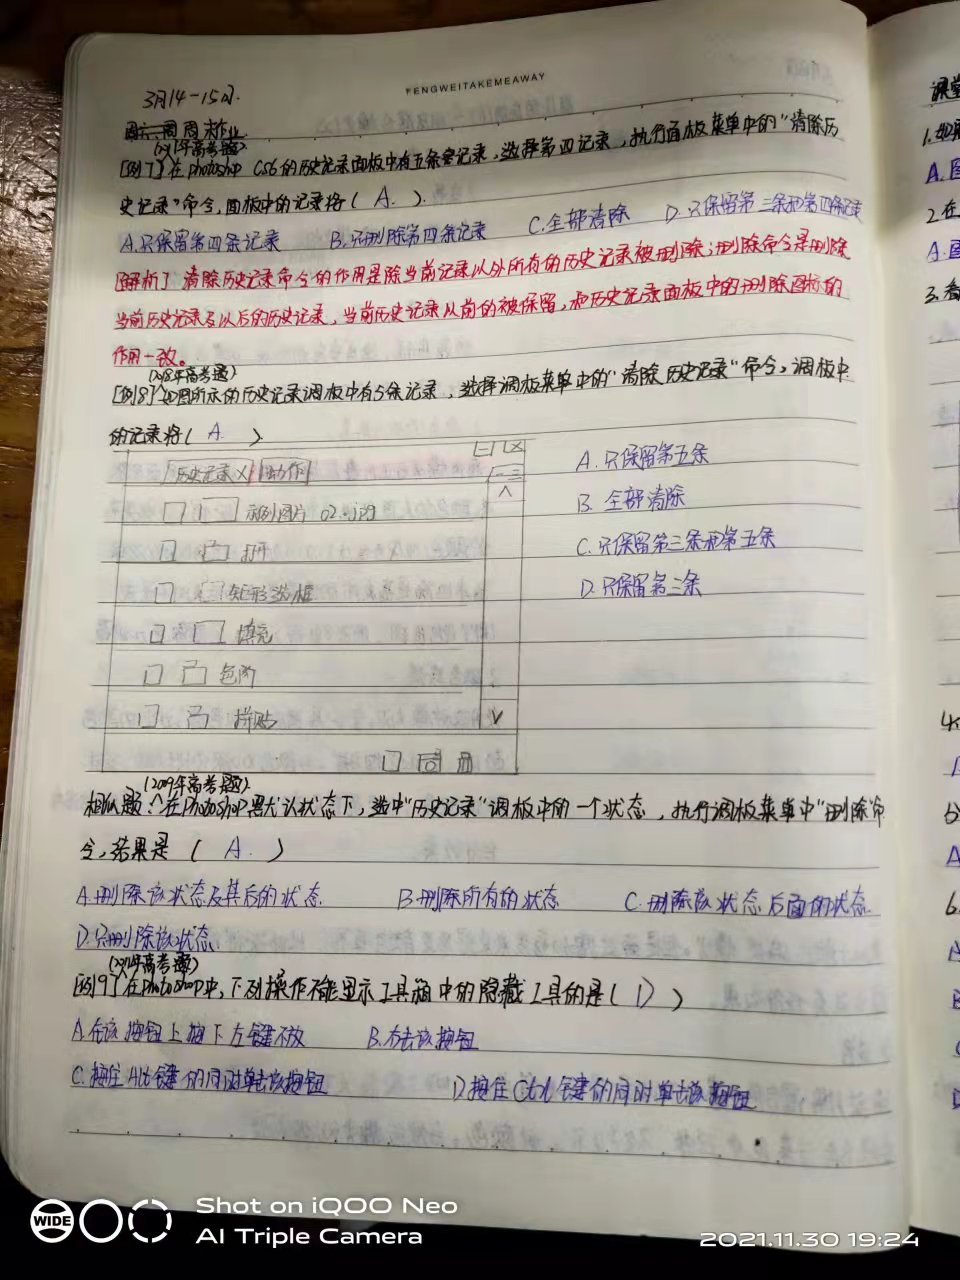 FENGWEITAKEMEAWAY
3月14-15日.
周末作业
[例7]在photoshop CS6的历史记录面板中有五条记录,选择第四记录,执行面板菜单中的"清除历
史记录"命令,面板中的记录将( A. ).
A.只保留第四条记录 B.只删除第四条记录 C.全部清除 D.只保留第三条和第四条记录
[解析] 清除历史记录命令的作用是除当前记录以外所有的历史记录被删除;删除命令是删除
当前历史记录及以后的历史记录,当前历史记录以前的被保留,和历史记录面板中的删除图标的
作用一致。
(2018年高考题)
[例8]如图所示的历史记录调板中有5条记录,选择调板菜单中的"清除历史记录"命令,调板中
的记录将( A. )
历史记录 X 动作
A.只保留第五条
示例图片
B. 全部清除
打开
C.只保留第三条和第五条
矩形选框
D.只保留第三条
填充
色阶
拼贴
(2009年高考题)
相似题:在Photoshop默认状态下,选中"历史记录"调板中的一个状态,执行调板菜单中"删除"命
令,结果是( A. )
A.删除该状态及其后的状态 B.删除所有的状态 C.删除该状态后面的状态
D.只删除该状态
[例9]在photoshop中,下列操作不能显示工具箱中的隐藏工具的是( D )
A.在该按钮上按下左键不放 B.右击该按钮
C.按住Alt键的同时单击该按钮 D.按住Ctrl键的同时单击该按钮
WIDE
Shot on iQOO Neo
AI Triple Camera
2021.11.30 19:24